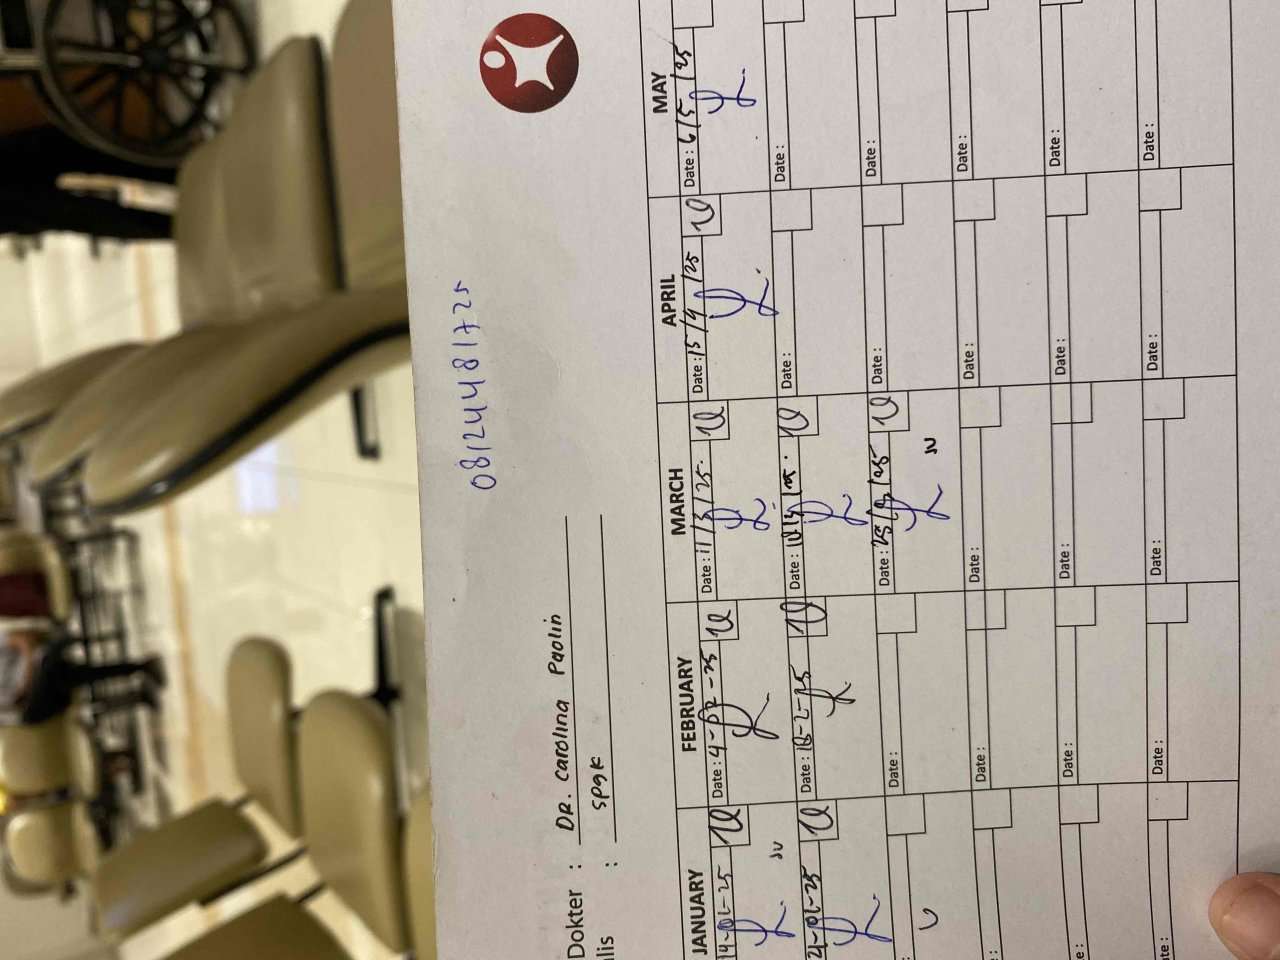 081244481725
Dokter : DR. carolina Paolin
lis : spgk
JANUARY FEBRUARY MARCH APRIL MAY
14-01-25 Date : 4-02-25 Date : 11/3/25 Date : 15/4/25 Date : 6/5/25
21-01-25 Date : 18-2-25 Date : Date : Date :
Date : Date : 25/3/25 Date : Date :
Date : Date : Date : Date :
Date : Date : Date : Date :
Date : Date : Date : Date :